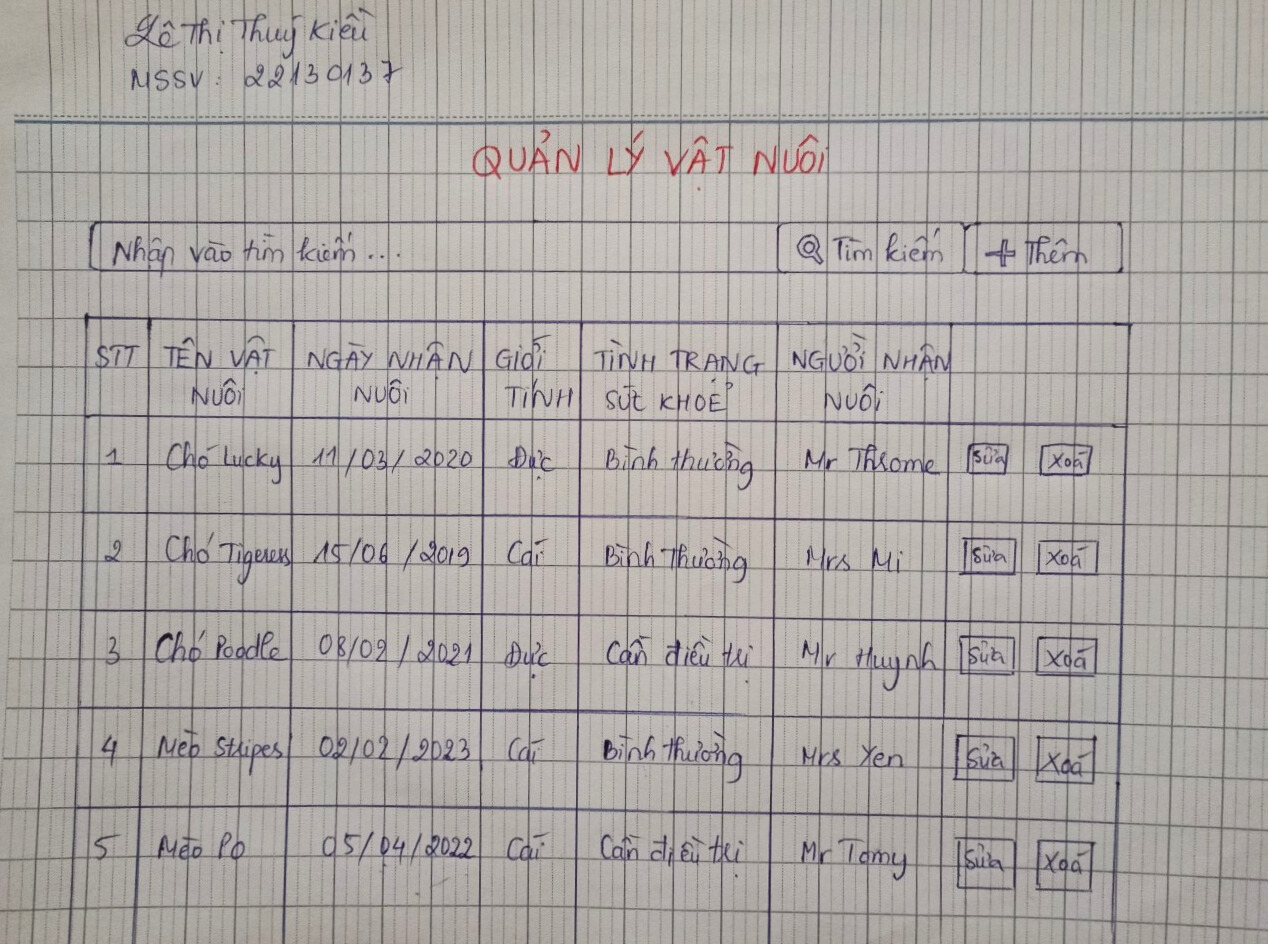 Lê Thị Thuý Kiều
MSSV: 22130137
QUẢN LÝ VẬT NUÔI
Nhập vào tìm kiếm... Tìm kiếm + Thêm
STT TÊN VẬT NUÔI NGÀY NHẬN NUÔI GIỚI TÍNH TÌNH TRẠNG SỨC KHOẺ NGƯỜI NHẬN NUÔI
1 Chó Lucky 11/03/2020 Đực Bình thường Mr Throme Sửa Xoá
2 Chó Tigeress 15/06/2019 Cái Bình Thường Mrs Mi Sửa Xoá
3 Chó Poodle 08/02/2021 Đực Cần điều trị Mr Huynh Sửa Xoá
4 Mèo Stripes 02/02/2023 Cái Bình thường Mrs Yen Sửa Xoá
5 Mèo Po 05/04/2022 Cái Cần điều trị Mr Tomy Sửa Xoá